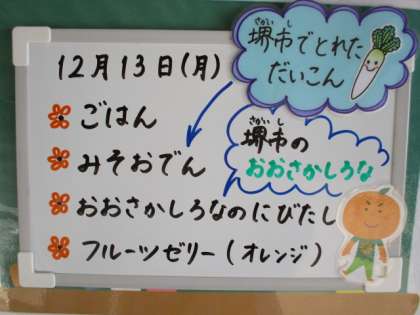 さかい し
堺市でとれた
だいこん
12月13日(月)
ごはん
みそおでん
さかい し
堺市の
おおさかしろな
おおさかしろなのにびたし
フルーツゼリー(オレンジ)